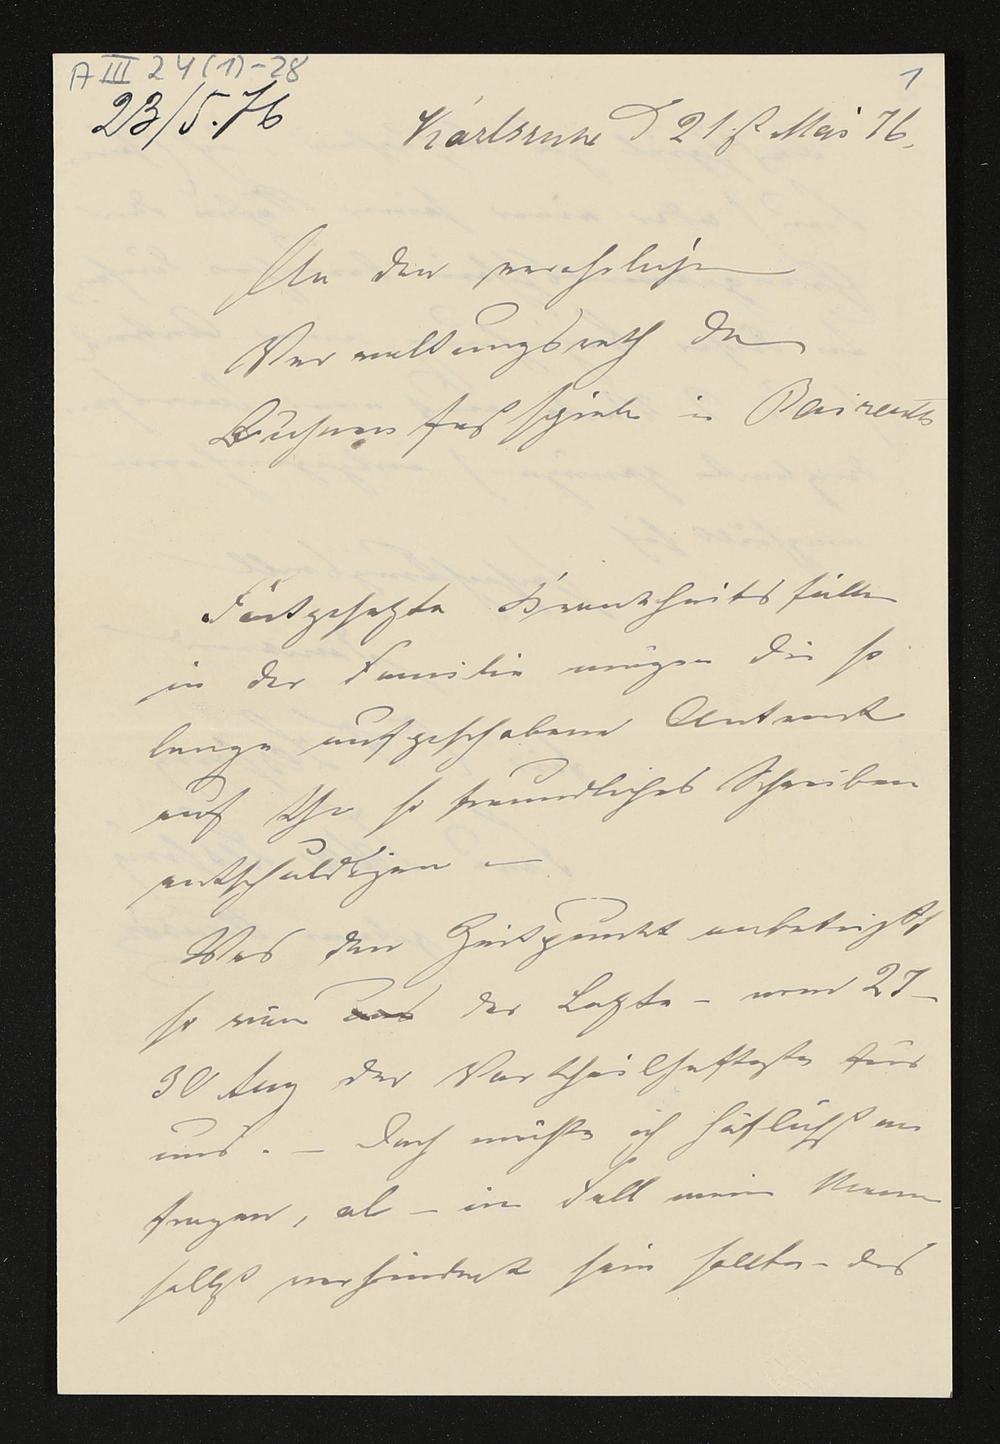 A III 24 (1)-28
1
23/5.76
Karlsruhe d 21 st Mai 76.
An den verehrlichen
Verwaltungsrath der
Bühnenfestspiele in Baireuth
Fortgesetzte Krankheitsfälle
in der Familie mögen die so
lange aufgeschobene Antwort
auf Ihr so freundliches Schreiben
entschuldigen —
Was den Zeitpunkt anbetrifft
so wäre der Letzte – vom 27–
30 Aug der Vortheilhafteste für
uns. – Doch möchte ich höflichst an
fragen, ob – im Fall mein Mann
selbst verhindert sein sollte – das